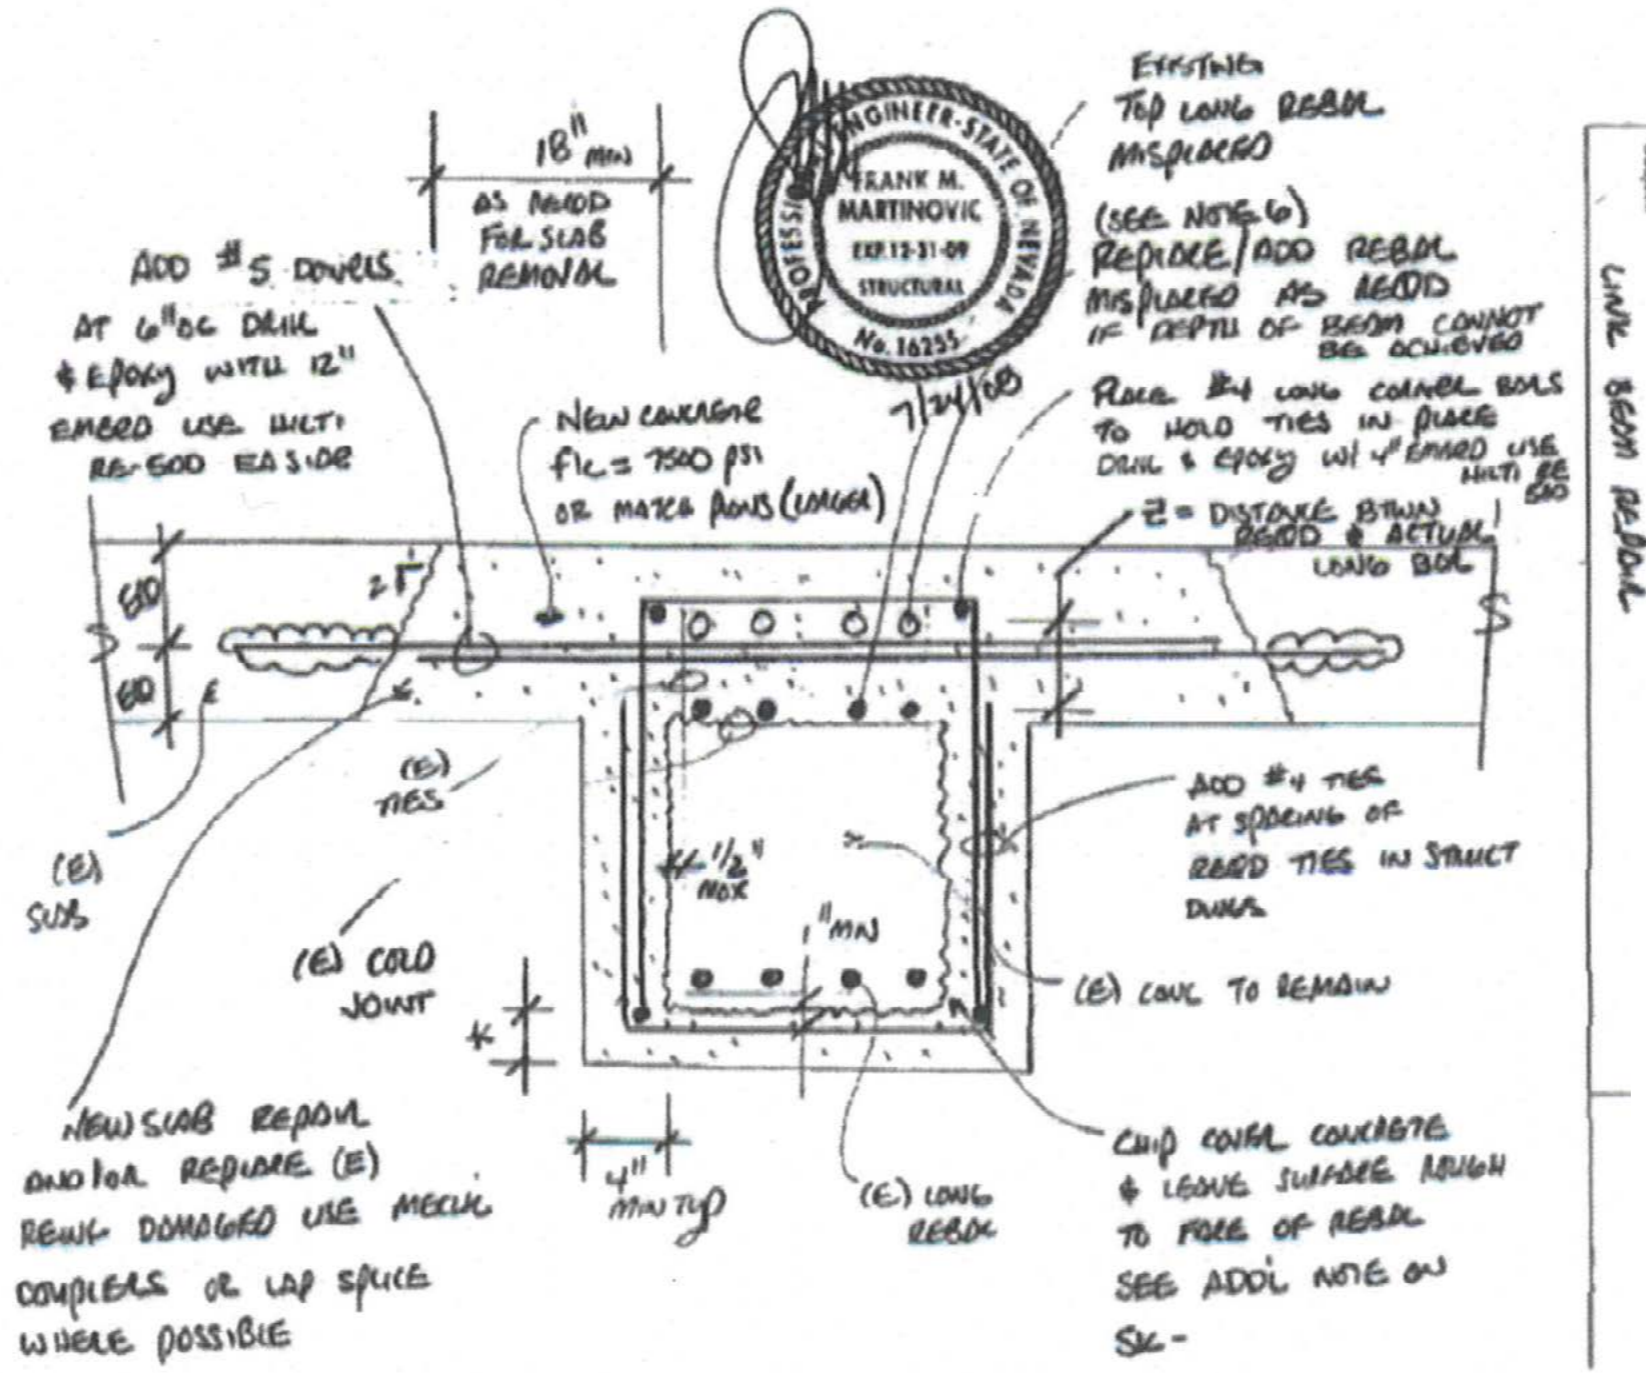 18" MIN
AS REQD
FOR SLAB
REMOVAL
PROFESSIONAL ENGINEER-STATE OF NEVADA
FRANK M.
MARTINOVIC
EXP. 12-31-09
STRUCTURAL
No. 16255
7/24/08
EXISTING
TOP LONG REBAR
MISPLACED
(SEE NOTE 6)
REPLACE/ADD REBAR
MISPLACED AS REQD
IF DEPTH OF BEAM CANNOT
BE ACHIEVED
PLACE #4 LONG CORNER BARS
TO HOLD TIES IN PLACE
DRILL & EPOXY W/ 4" EMBED USE
HILTI RE
500
Z = DISTANCE BTWN
REQD & ACTUAL
LONG BAR
ADD #5 DOWELS
AT 6" OC DRILL
& EPOXY WITH 12"
EMBED USE HILTI
RE-500 EA SIDE
NEW CONCRETE
f'c = 7500 PSI
OR MATCH PLANS (LARGER)
EQ
EQ
2
1
(E)
TIES
(E)
SLAB
(E) COLD
JOINT
1/2"
MAX
1" MIN
ADD #4 TIES
AT SPACING OF
REQD TIES IN STRUCT
DWGS
(E) CONC TO REMAIN
*
4"
MIN TYP
(E) LONG
REBAR
NEW SLAB REPAIR
AND/OR REPLACE (E)
REINF DAMAGED USE MECH
COUPLERS OR LAP SPLICE
WHERE POSSIBLE
CHIP COVER CONCRETE
& LEAVE SURFACE ROUGH
TO FACE OF REBAR
SEE ADD'L NOTE ON
SK-
LINK BEAM REPAIR